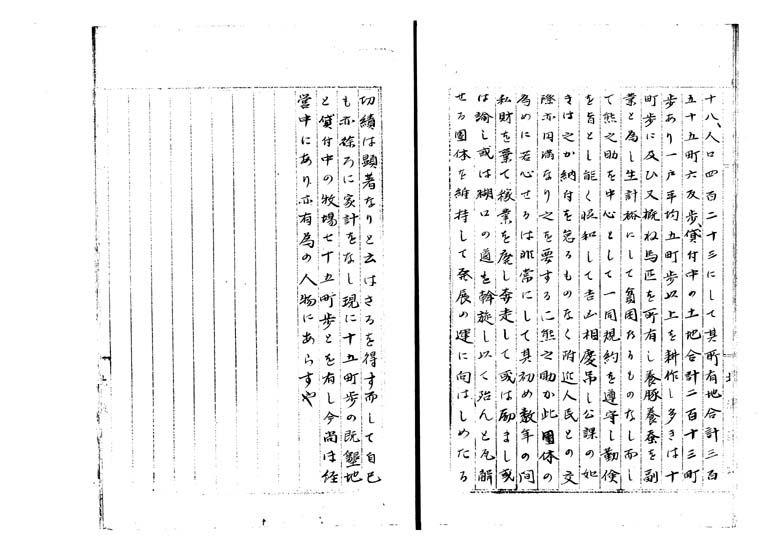 十八、人口四百二十三にして其所有地合計三百
五十五町六反歩貸付中の土地合計二百十三町
歩あり一戸平均五町歩以上を耕作し多きは十
町歩に及ひ又概ね馬匹を所有し養豚養蚕を副
業と為し生計裕にして貧困なるものなし而し
て熊之助を中心として一同規約を遵守し勤倹
を旨とし能く協和して吉凶相慶弔し公課の如
きは之か納付を怠るものなく附近人民との交
際亦円満なり之を要するに熊之助か此團体の
為めに苦心せるは非常にして其初め数年の間
私財を棄て稼業を廃し奔走して或は励まし或
は諭し或は糊口の道を斡旋し以て殆んと瓦解
せる團体を維持して発展の運に向はしめたる
功績は顕著なりと云はさるを得す而して自己
も亦徐ろに家計をなし現に十五町歩の既墾地
と貸付中の牧場七十五町歩とを有し今尚ほ経
営中にあり亦有為の人物にあらすや